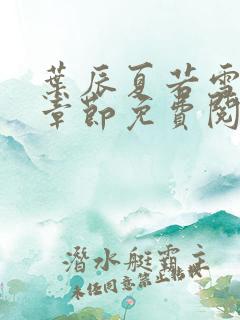 葉辰夏若雪
章節免費閱
潛水艇霸主
未任同意禁止轉載